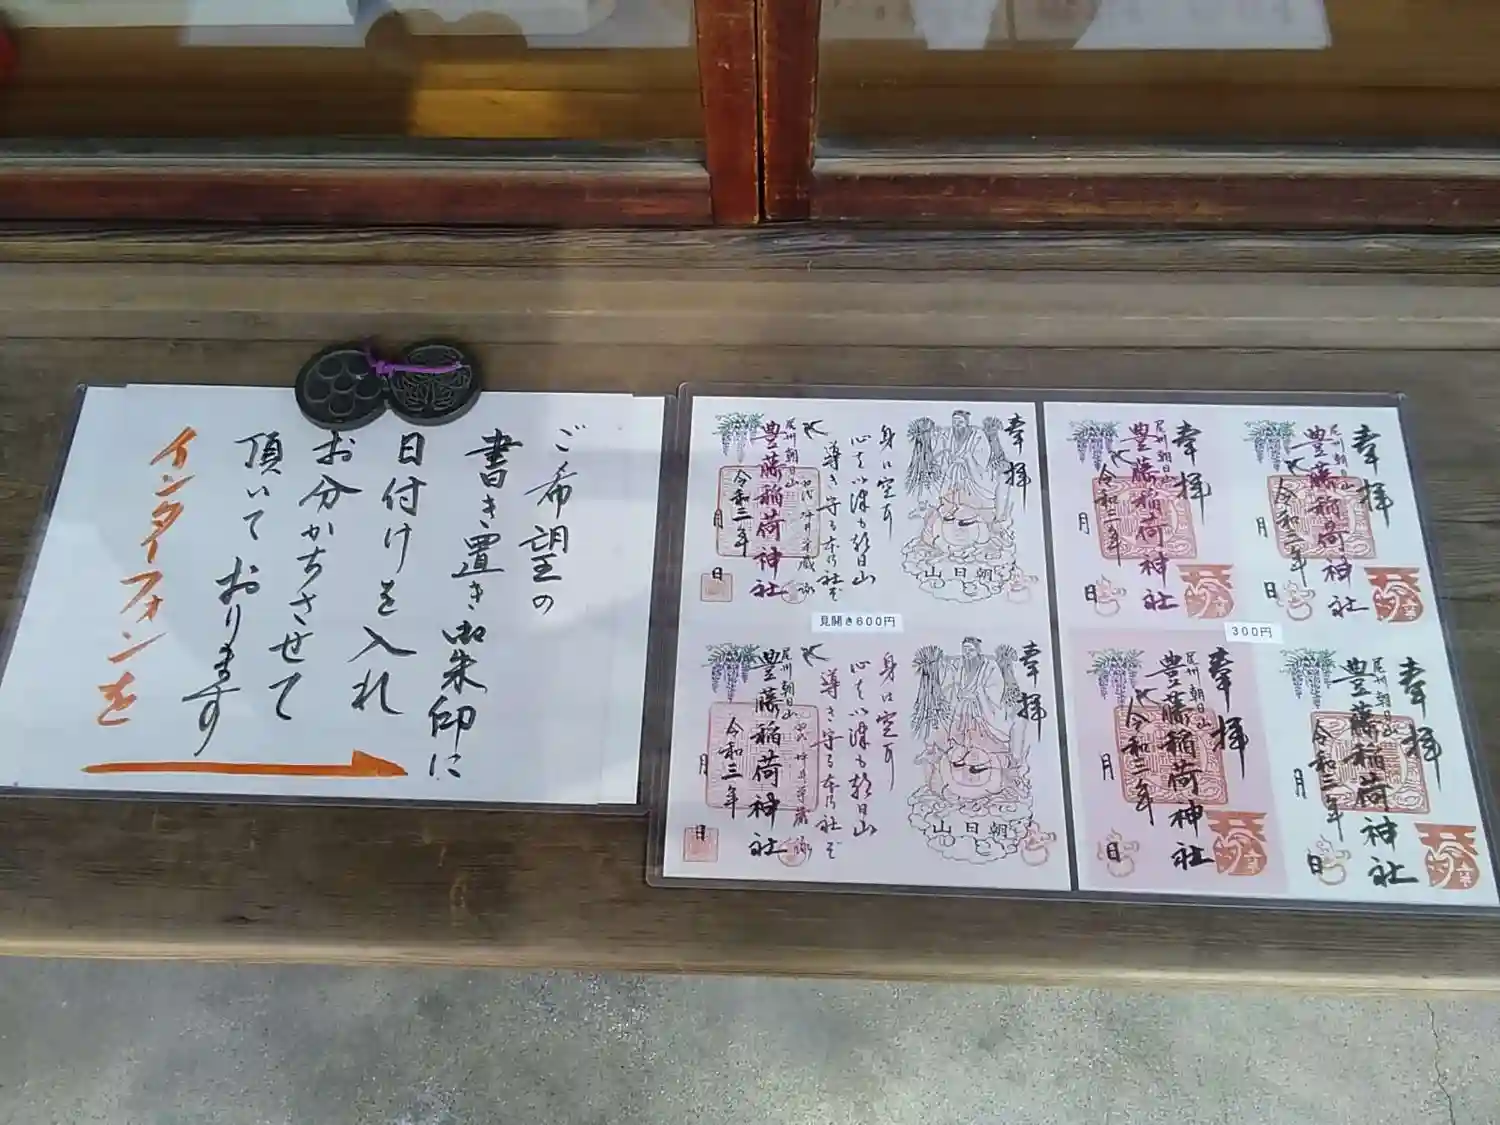 ご希望の
書き置き御朱印に
日付けを入れ
お分かちさせて
頂いております
インターフォンを
奉拝
朝日山
身に空に
導き守る
尾州 朝日山
豊藤稲荷神社
令和三年
月
日
見開き600円
奉拝
朝日山
導き守る
尾州 朝日山
豊藤稲荷神社
令和三年
月
日
奉拝
尾州 朝日山
豊藤稲荷神社
令和三年
月
日
奉拝
尾州 朝日山
豊藤稲荷神社
令和三年
月
日
300円
奉拝
尾州 朝日山
豊藤稲荷神社
令和三年
月
日
奉拝
尾州 朝日山
豊藤稲荷神社
令和三年
月
日